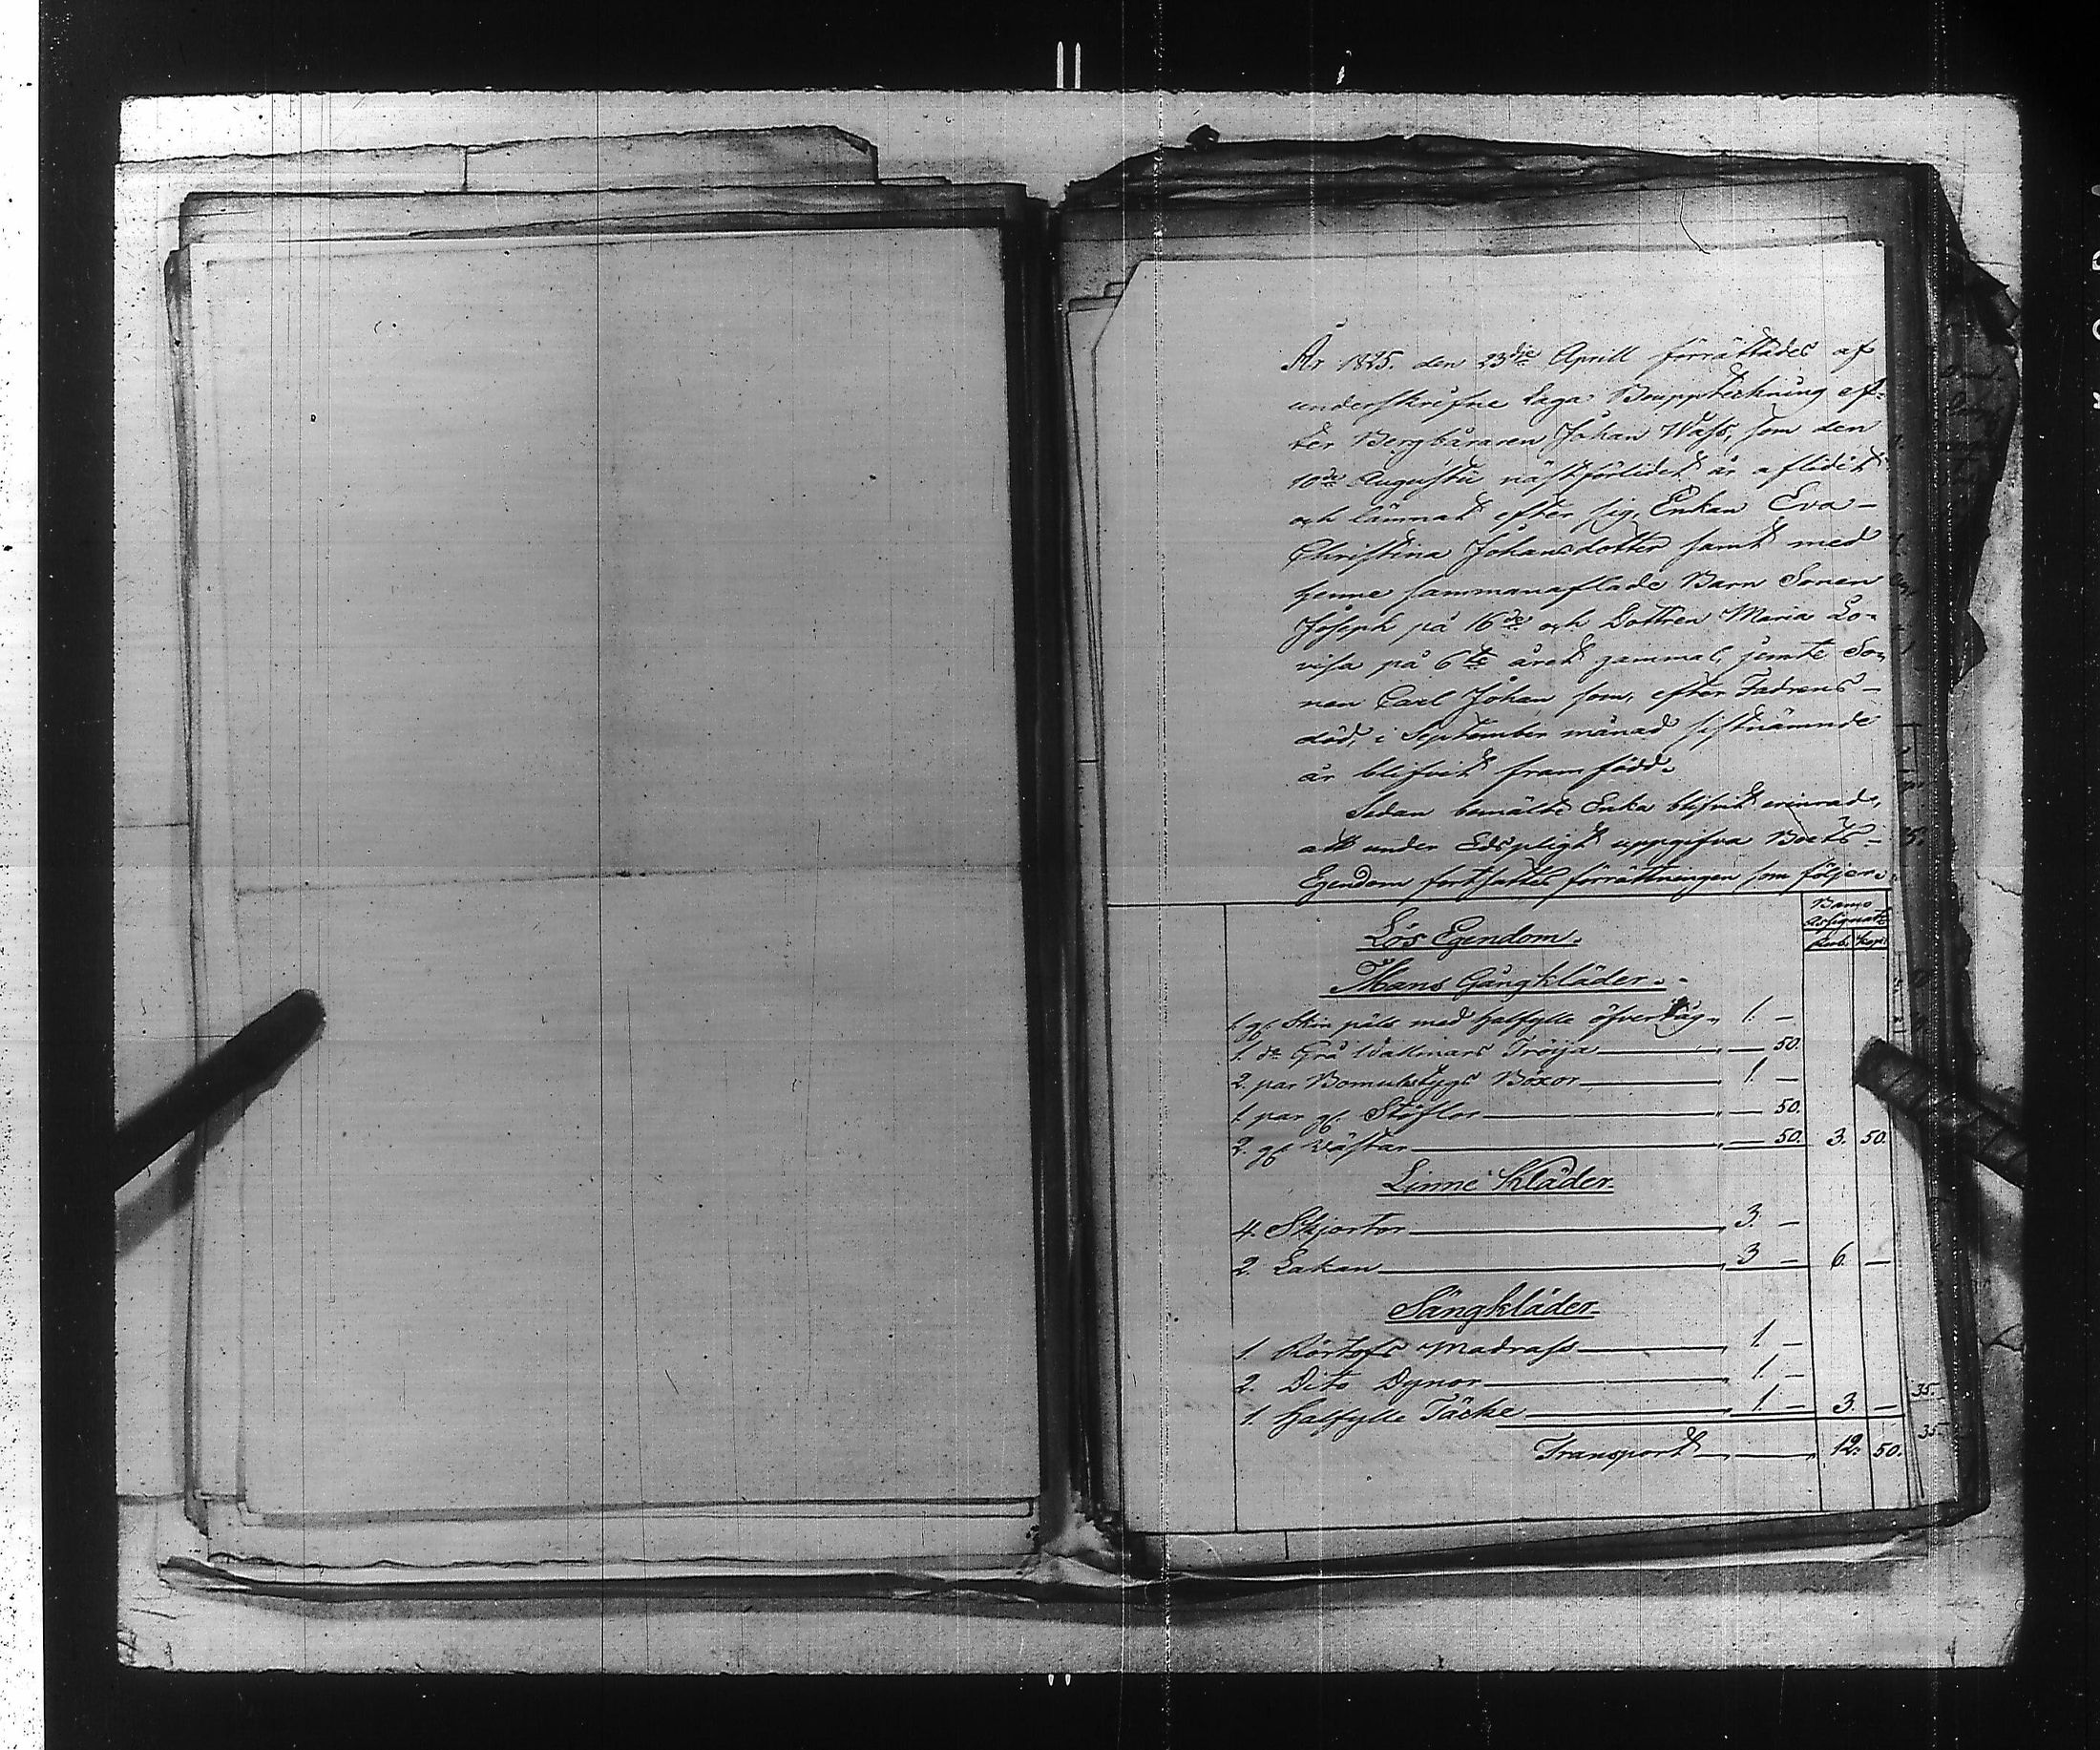 År 1825. den 23die Aprill förrättades af
underskrefne Laga Bouppteckning ef-
ter Bergbäraren Johan Wass, som den
10de Augusti nästförledet år aflidit
och lämnat efter sig, Enkan Eva
Christina Johansdotter samt med
henne sammanaflade Barn Sonen
Joseph på 16de och Dottren Maria Lo-
visa på 6te året gammal, jemte So-
nen Carl Johan som, efter Fadrens
död, i September månad sistnämnde
år blifvit fram född.
Sedan bemälte Enka blifvit erinrad,
att under Edspligt uppgifva Boets
Egendom fortsattes förrättningen som följer:
Banco Assignat:
Rub. Kop:
Lös Egendom.
Mans Gångkläder.
1. gl. Skin päls med halfylle öfvertåg 1. —
1. do Grå Wallmars Tröija — 50.
2. par Bomulstygs Böxor 1. —
1. par gl. Stöflor — 50.
2. gl. Västar — 50. 3. 50.
Linne Kläder.
4. Skjortor 3. —
2. Lakan 3 — 6. —
Sängkläder.
1. Madrass 1. —
2. Dito Dynor 1. —
1. halfylle Täcke 1. — 3. —
Transport — 12. 50.
35.
35